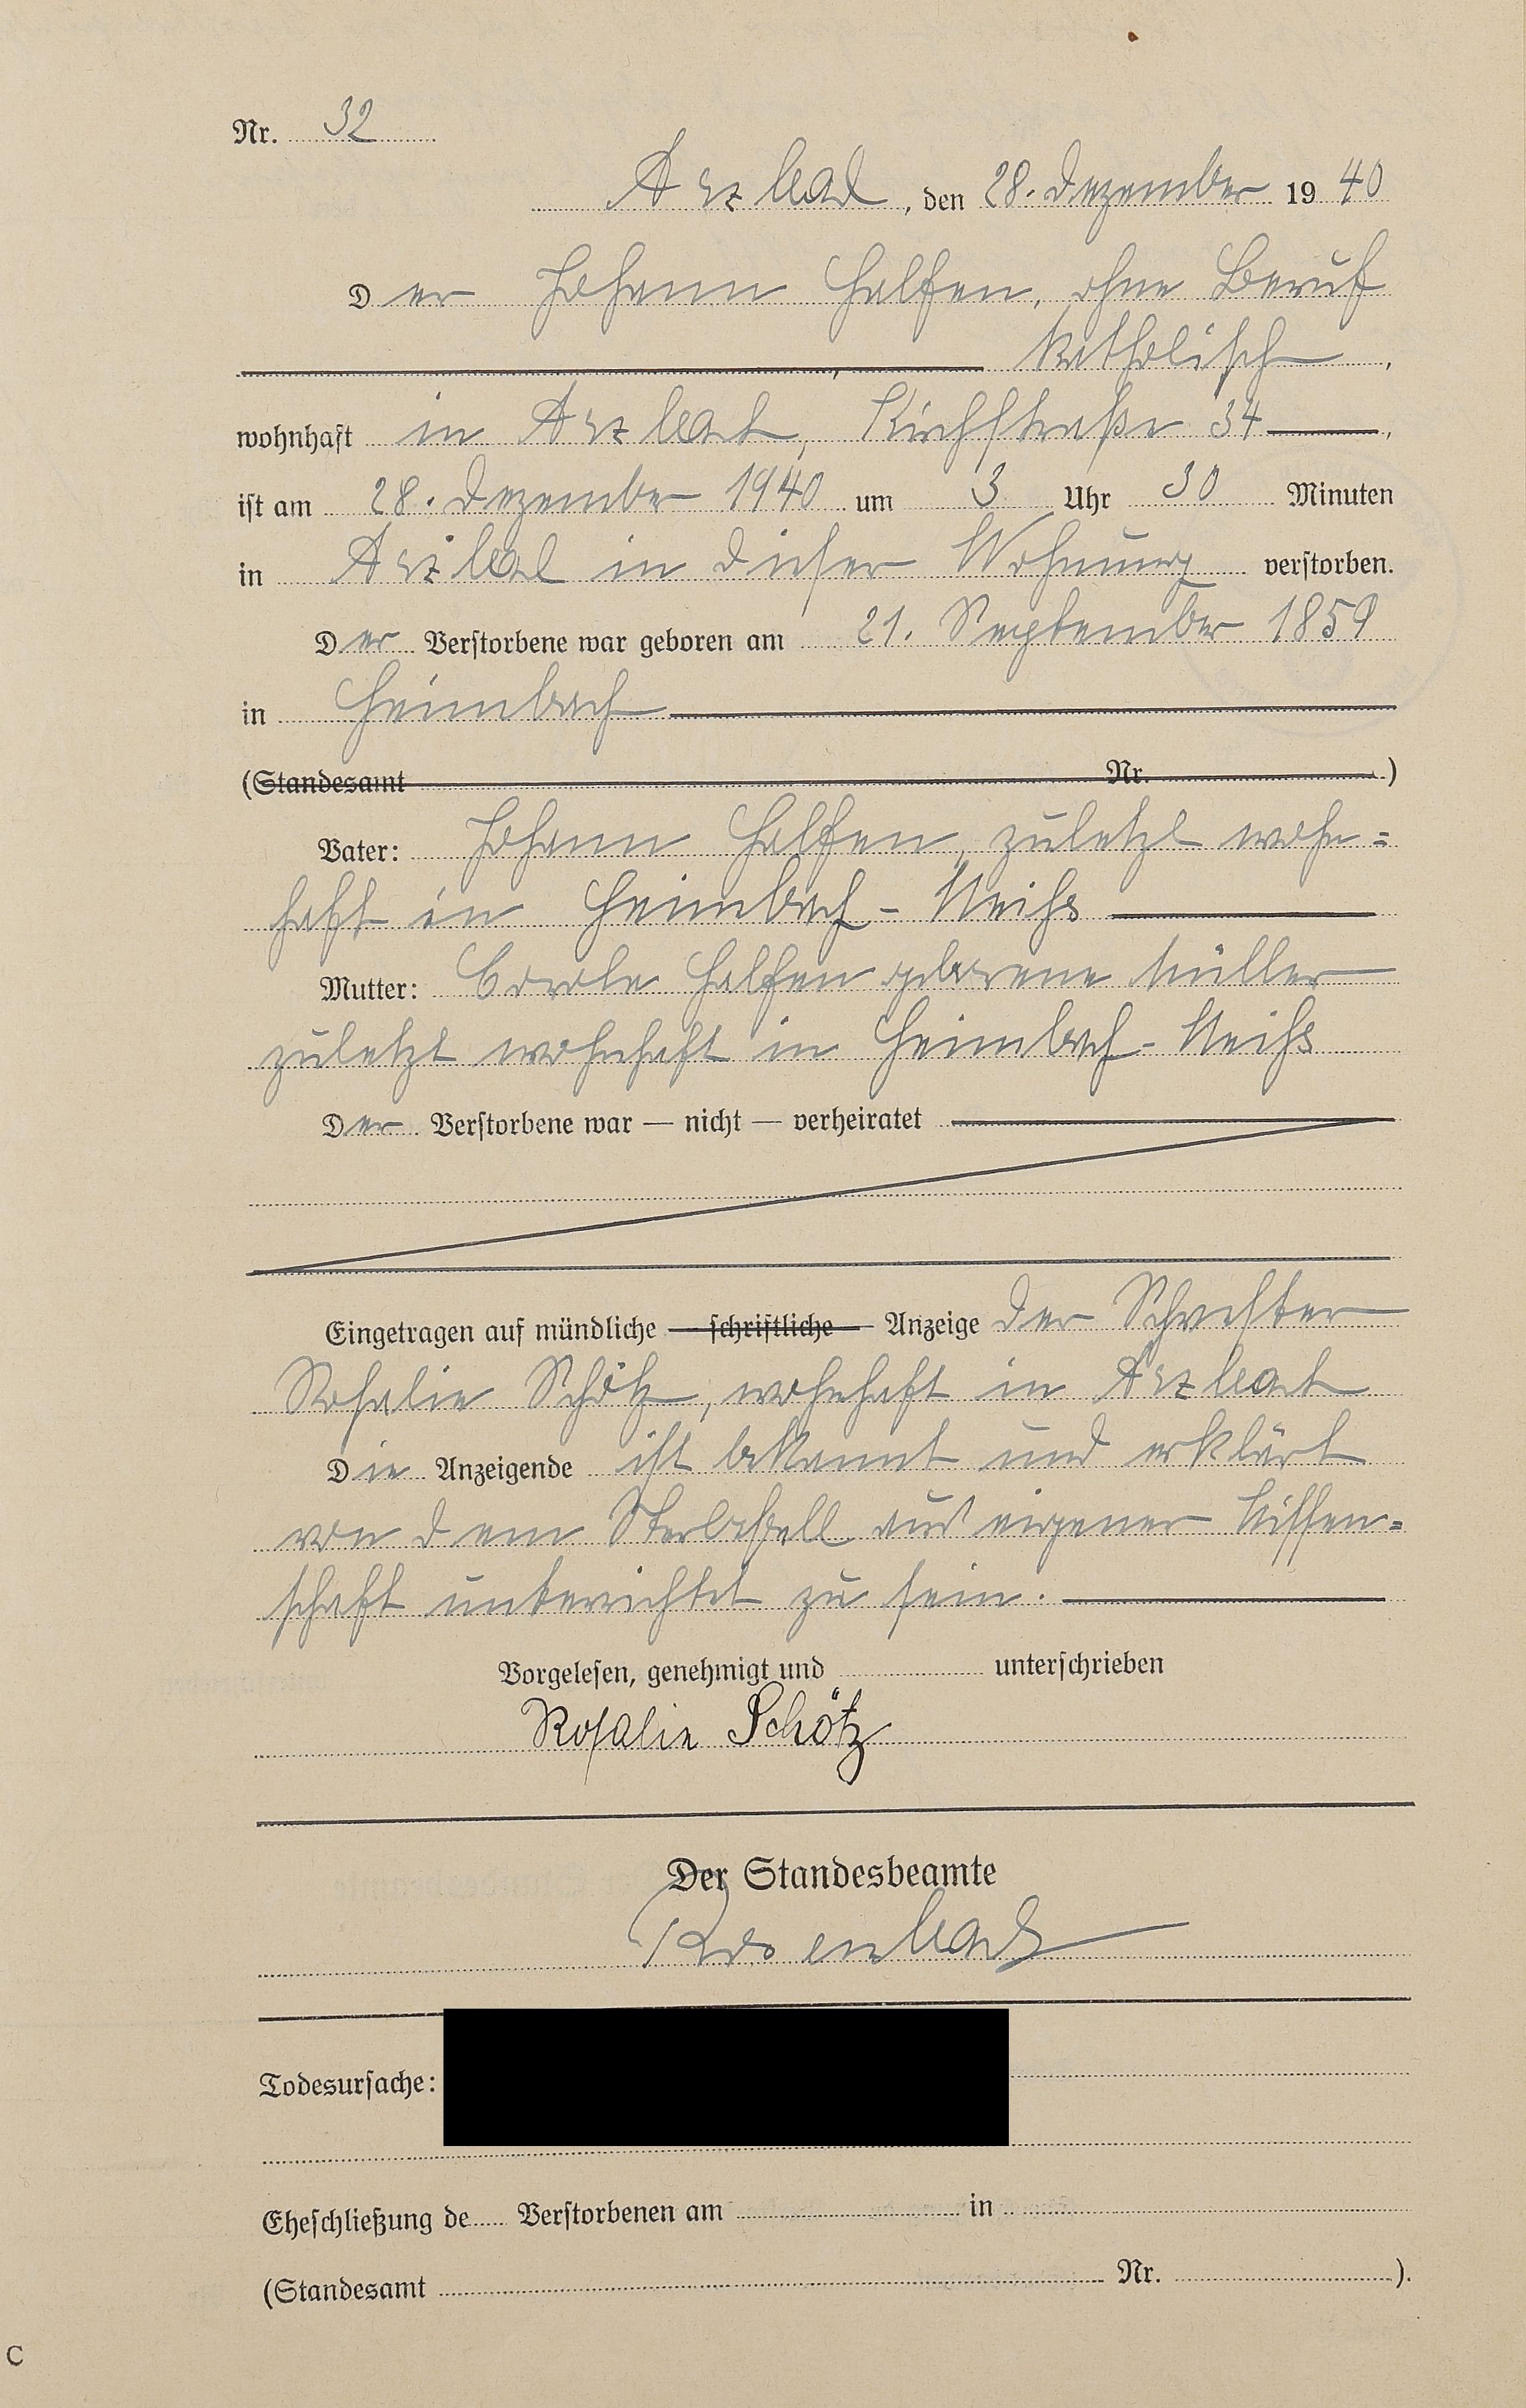 Nr. 32
Arzbach, den 28. Dezember 1940
Der Johann Halfen, ohne Beruf
katholisch,
wohnhaft in Arzbach, Kirchstraße 34,
ist am 28. Dezember 1940 um 3 Uhr 30 Minuten
in Arzbach in dieser Wohnung verstorben.
Der Verstorbene war geboren am 21. September 1859
in Heimbach
(Standesamt Nr. )
Vater: Johann Halfen, zuletzt wohn=
haft in Heimbach-Weiß
Mutter: Halfen geborene Müller
zuletzt wohnhaft in Heimbach-Weiß
Der Verstorbene war — nicht — verheiratet
Eingetragen auf mündliche — schriftliche — Anzeige der Schwester
Rosalie Schötz, wohnhaft in Arzbach
Die Anzeigende ist bekannt und erklärt
von dem Sterbefall aus eigener Wissen=
schaft unterrichtet zu sein.
Vorgelesen, genehmigt und unterschrieben
Rosalie Schötz
Der Standesbeamte
Rosenbach
Todesursache:
Eheschließung de Verstorbenen am in
(Standesamt Nr. ).
C